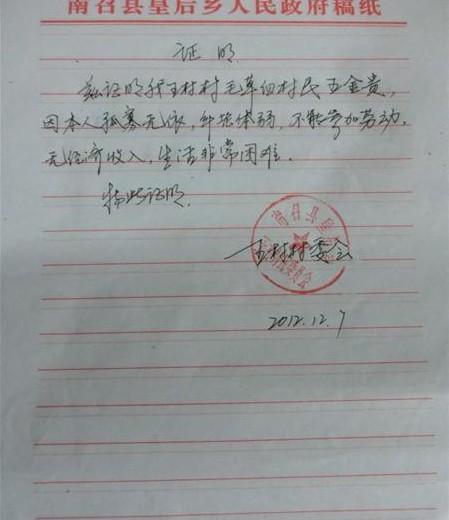 南召县皇后乡人民政府稿纸
证明
兹证明我王村村毛草凹村民王金贵,
因本人孤寡无依,年老体弱,不能参加劳动,
无经济收入,生活非常困难.
特此证明.
南召县皇后
王村村委会
2012.12.7